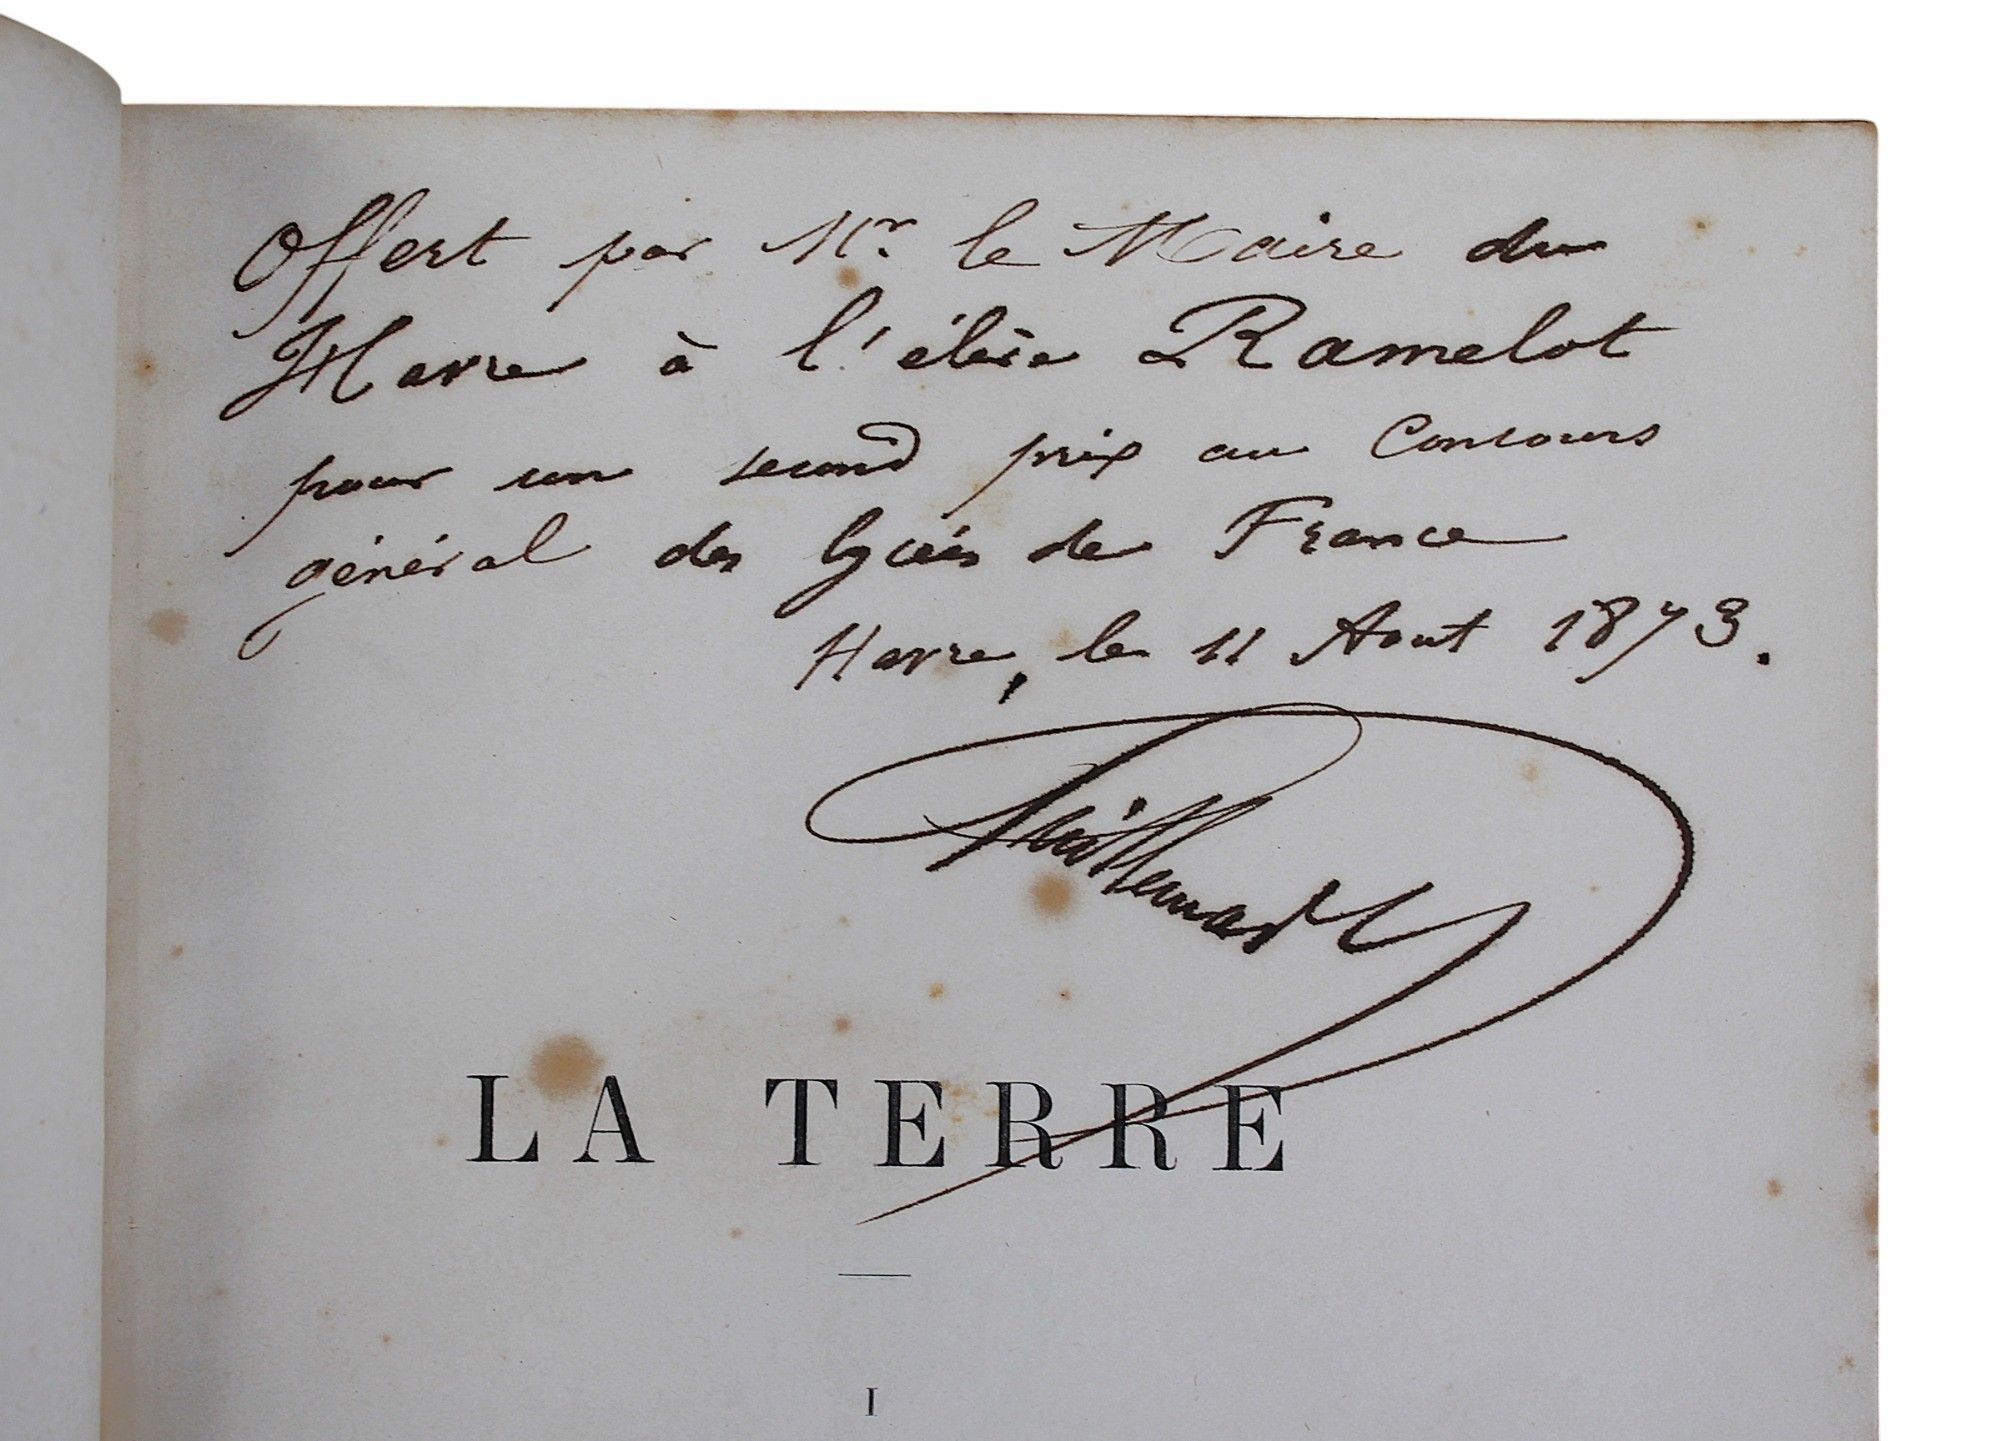 Offert par Mr. le Maire du
Havre à l'élève Ramelot
pour un second prix au Concours
général des lycées de France
Havre, le 11 Aout 1873.
Guillemard
LA TERRE
I